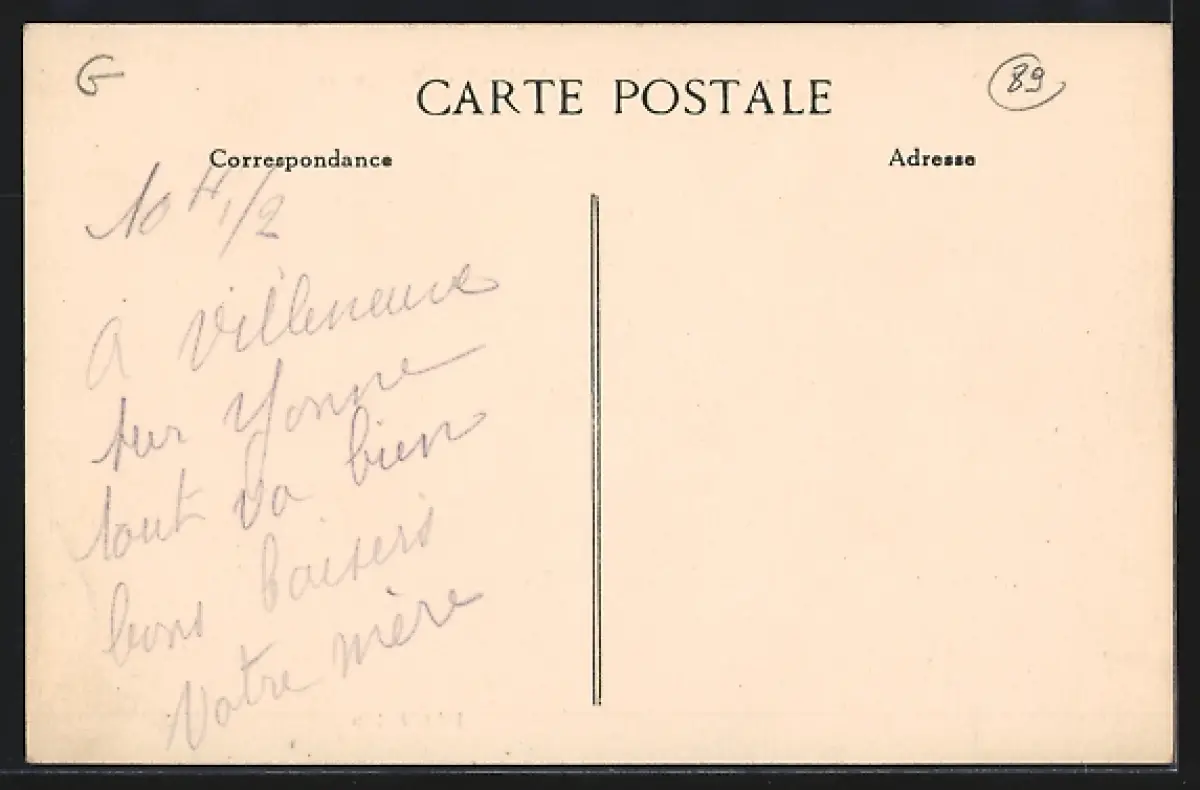 G
CARTE POSTALE
89
Correspondance
Adresse
10 H 1/2
à Villeneuve
sur Yonne
tout va bien
bons baisers
Votre mère